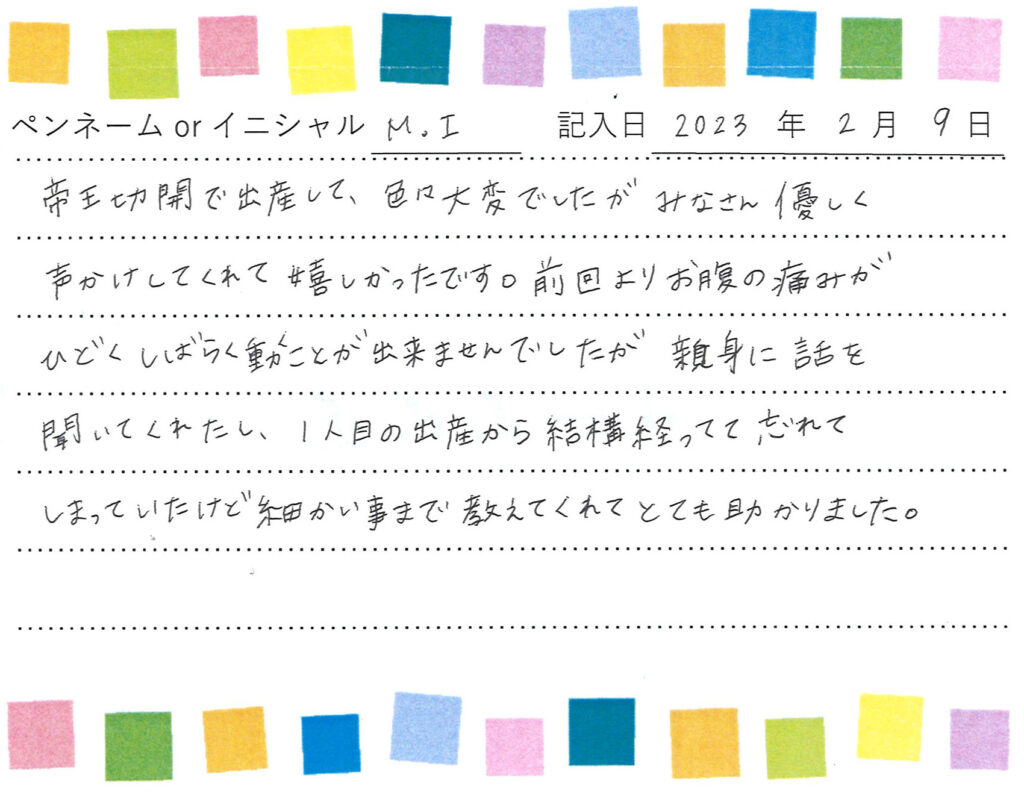 ペンネーム or イニシャル M.I 記入日 2023 年 2 月 9 日
帝王切開で出産して、色々大変でしたが みなさん優しく
声かけしてくれて嬉しかったです。前回よりお腹の痛みが
ひどくしばらく動くことが出来ませんでしたが 親身に話を
聞いてくれたし、1人目の出産から結構経ってて忘れて
しまっていたけど細かい事まで教えてくれてとても助かりました。